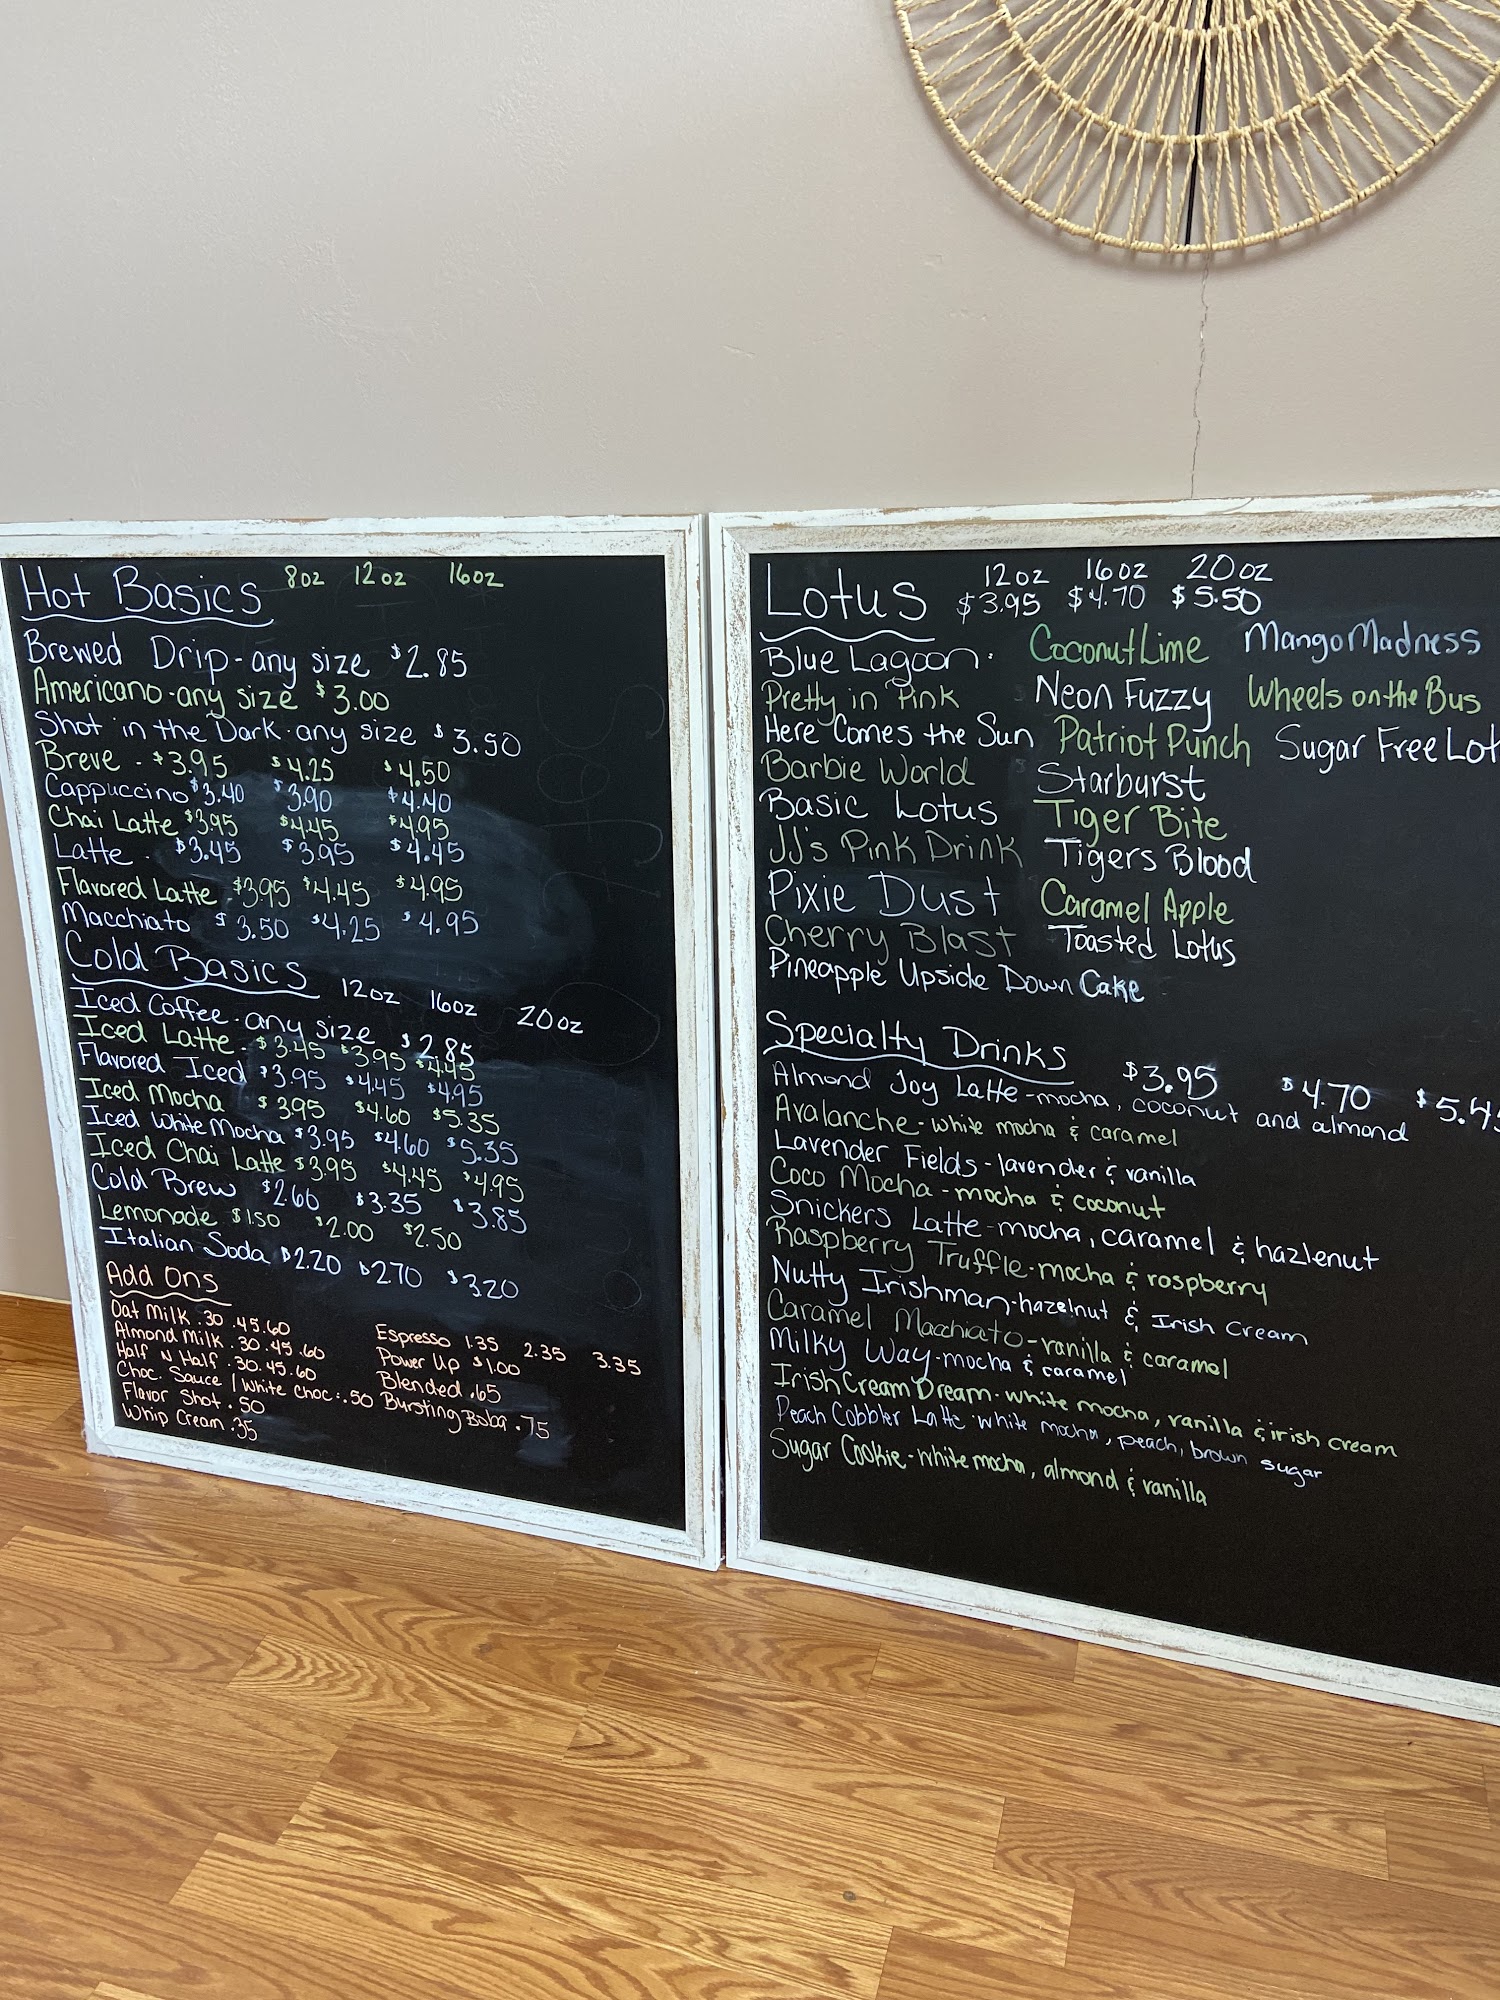 Hot Basics 8oz 12oz 16oz
Brewed Drip-any size $2.85
Americano-any size $3.00
Shot in the Dark-any size $3.50
Breve - $3.95 $4.25 $4.50
Cappuccino $3.40 $3.90 $4.40
Chai Latte $3.95 $4.45 $4.95
Latte - $3.45 $3.95 $4.45
Flavored Latte $3.95 $4.45 $4.95
Macchiato $3.50 $4.25 $4.95
Cold Basics 12oz 16oz 20oz
Iced Coffee-any size $2.85
Iced Latte - $3.45 $3.95 $4.45
Flavored Iced $3.95 $4.45 $4.95
Iced Mocha $3.95 $4.60 $5.35
Iced White Mocha $3.95 $4.60 $5.35
Iced Chai Latte $3.95 $4.45 $4.95
Cold Brew $2.60 $3.35 $3.85
Lemonade $1.50 $2.00 $2.50
Italian Soda $2.20 $2.70 $3.20
Add Ons
Oat Milk .30 .45 .60
Almond Milk .30 .45 .60
Half N Half .30 .45 .60
Choc. Sauce / White Choc. .50
Flavor Shot .50
Whip Cream .35
Espresso 1.35 2.35 3.35
Power Up $1.00
Blended .65
Bursting Boba .75
Lotus 12oz 16oz 20oz
$3.95 $4.70 $5.50
Blue Lagoon Coconut Lime Mango Madness
Pretty in Pink Neon Fuzzy Wheels on the Bus
Here Comes the Sun Patriot Punch Sugar Free Lot
Barbie World Starburst
Basic Lotus Tiger Bite
JJ's Pink Drink Tigers Blood
Pixie Dust Caramel Apple
Cherry Blast Toasted Lotus
Pineapple Upside Down Cake
Specialty Drinks $3.95 $4.70 $5.45
Almond Joy Latte-mocha, coconut and almond
Avalanche-white mocha & caramel
Lavender Fields-lavender & vanilla
Coco Mocha-mocha & coconut
Snickers Latte-mocha, caramel & hazlenut
Raspberry Truffle-mocha & rospberry
Nutty Irishman-hazelnut & Irish Cream
Caramel Macchiato-vanilla & caramel
Milky Way-mocha & caramel
Irish Cream Dream-white mocha, vanilla & irish cream
Peach Cobbler Latte-white mocha, peach, brown sugar
Sugar Cookie-white mocha, almond & vanilla